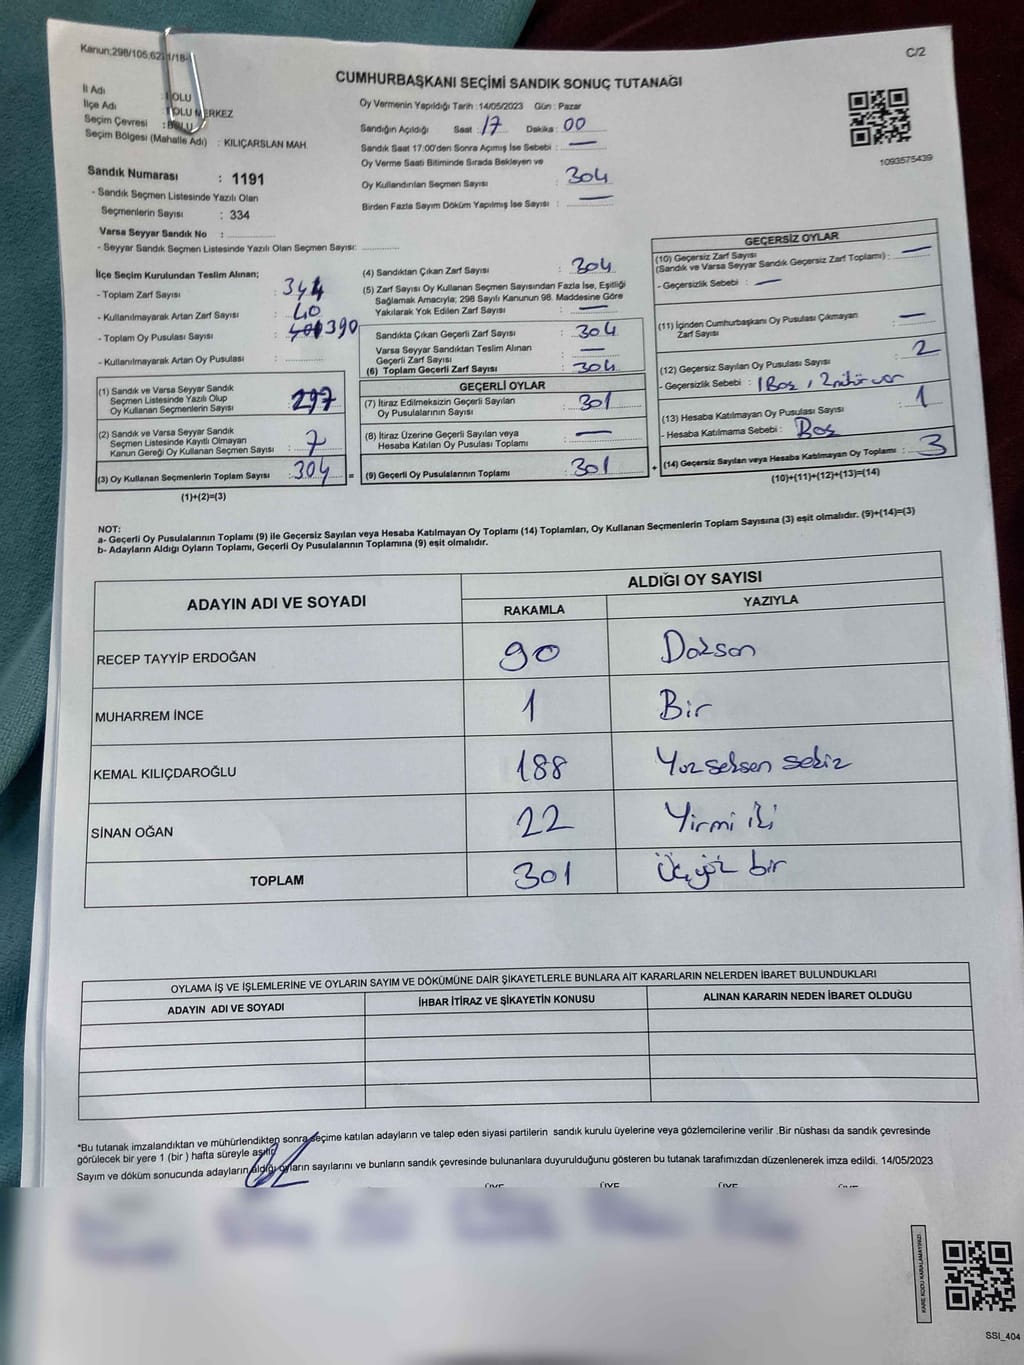 Kanun:298/105,62
C/2
CUMHURBAŞKANI SEÇİMİ SANDIK SONUÇ TUTANAĞI
İl Adı : BOLU
İlçe Adı : BOLU MERKEZ
Seçim Çevresi : BOLU
Seçim Bölgesi (Mahalle Adı) : KILIÇARSLAN MAH.
Sandık Numarası : 1191
- Sandık Seçmen Listesinde Yazılı Olan
Seçmenlerin Sayısı : 334
Varsa Seyyar Sandık No :
- Seyyar Sandık Seçmen Listesinde Yazılı Olan Seçmen Sayısı:
Oy Vermenin Yapıldığı Tarih :14/05/2023 Gün : Pazar
Sandığın Açıldığı Saat : 17 Dakika : 00
Sandık Saat 17:00'den Sonra Açımış İse Sebebi : —
Oy Verme Saati Bitiminde Sırada Bekleyen ve
Oy Kullandırılan Seçmen Sayısı : 304
Birden Fazla Sayım Döküm Yapılmış İse Sayısı : —
1093575439
İlçe Seçim Kurulundan Teslim Alınan;
- Toplam Zarf Sayısı : 344
- Kullanılmayarak Artan Zarf Sayısı : 40
- Toplam Oy Pusulası Sayısı : 390
- Kullanılmayarak Artan Oy Pusulası :
(1) Sandık ve Varsa Seyyar Sandık
Seçmen Listesinde Yazılı Olup
Oy Kullanan Seçmenlerin Sayısı : 297
(2) Sandık ve Varsa Seyyar Sandık
Seçmen Listesinde Kayıtlı Olmayan
Kanun Gereği Oy Kullanan Seçmen Sayısı : 7
(3) Oy Kullanan Seçmenlerin Toplam Sayısı : 304 =
(1)+(2)=(3)
(4) Sandıktan Çıkan Zarf Sayısı : 304
(5) Zarf Sayısı Oy Kullanan Seçmen Sayısından Fazla İse, Eşitliği
Sağlamak Amacıyla; 298 Sayılı Kanunun 98. Maddesine Göre
Yakılarak Yok Edilen Zarf Sayısı : —
Sandıkta Çıkan Geçerli Zarf Sayısı : 304
Varsa Seyyar Sandıktan Teslim Alınan
Geçerli Zarf Sayısı : —
(6) Toplam Geçerli Zarf Sayısı : 304
GEÇERLİ OYLAR
(7) İtiraz Edilmeksizin Geçerli Sayılan
Oy Pusulalarının Sayısı : 301
(8) İtiraz Üzerine Geçerli Sayılan veya
Hesaba Katılan Oy Pusulası Toplamı : —
(9) Geçerli Oy Pusulalarının Toplamı : 301 +
GEÇERSİZ OYLAR
(10) Geçersiz Zarf Sayısı
(Sandık ve Varsa Seyyar Sandık Geçersiz Zarf Toplamı) : —
- Geçersizlik Sebebi : —
(11) İçinden Cumhurbaşkanı Oy Pusulası Çıkmayan
Zarf Sayısı : —
(12) Geçersiz Sayılan Oy Pusulası Sayısı : 2
- Geçersizlik Sebebi : 1 Boş, 2 mühür var
(13) Hesaba Katılmayan Oy Pusulası Sayısı : 1
- Hesaba Katılmama Sebebi : Boş
(14) Geçersiz Sayılan veya Hesaba Katılmayan Oy Toplamı : 3
(10)+(11)+(12)+(13)=(14)
NOT:
a- Geçerli Oy Pusulalarının Toplamı (9) ile Geçersiz Sayılan veya Hesaba Katılmayan Oy Toplamı (14) Toplamları, Oy Kullanan Seçmenlerin Toplam Sayısına (3) eşit olmalıdır. (9)+(14)=(3)
b- Adayların Aldığı Oyların Toplamı, Geçerli Oy Pusulalarının Toplamına (9) eşit olmalıdır.
ADAYIN ADI VE SOYADI ALDIĞI OY SAYISI
RAKAMLA YAZIYLA
RECEP TAYYİP ERDOĞAN 90 Doksan
MUHARREM İNCE 1 Bir
KEMAL KILIÇDAROĞLU 188 Yüz seksen sekiz
SİNAN OĞAN 22 Yirmi iki
TOPLAM 301 Üç yüz bir
OYLAMA İŞ VE İŞLEMLERİNE VE OYLARIN SAYIM VE DÖKÜMÜNE DAİR ŞİKAYETLERLE BUNLARA AİT KARARLARIN NELERDEN İBARET BULUNDUKLARI
ADAYIN ADI VE SOYADI İHBAR İTİRAZ VE ŞİKAYETİN KONUSU ALINAN KARARIN NEDEN İBARET OLDUĞU
*Bu tutanak imzalandıktan ve mühürlendikten sonra seçime katılan adayların ve talep eden siyasi partilerin sandık kurulu üyelerine veya gözlemcilerine verilir .Bir nüshası da sandık çevresinde
görülecek bir yere 1 (bir ) hafta süreyle asılır.
Sayım ve döküm sonucunda adayların aldığı oyların sayılarını ve bunların sandık çevresinde bulunanlara duyurulduğunu gösteren bu tutanak tarafımızdan düzenlenerek imza edildi. 14/05/2023
ÜYE ÜYE ÜYE ÜYE
KARE KODU KARALAMAYINIZ!
SSI_404